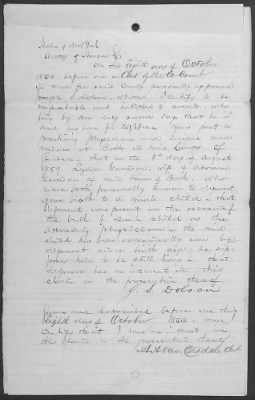 State of New York
County of Steuben SS
On this eighth day of October
1866 before me a Clerk of the Co Court
in and for said County personally appeared
Joseph S Dolson whom I certify to be
respectable and entitled to credit, who
being by me duly sworn says that he is
and has been for years past a
practicing physician and surgeon and
resides at Bath in said County of
Steuben, that on the day of August
1859 Lydia wife of
of said town of Bath, who
were both personally known to deponent
gave birth to a male child & that
deponent was present on the occasion of
the birth of such child as the
attending physician & the said
child has been occasionally seen by
deponent since birth and he
him to be still living & that
deponent has no interest in this
claim or the prosecution thereof
J. S. Dolson
Sworn and subscribed before me this
eighth day of October 1866 and
I certify that I have no interest in
the claim or the prosecution thereof
Clk